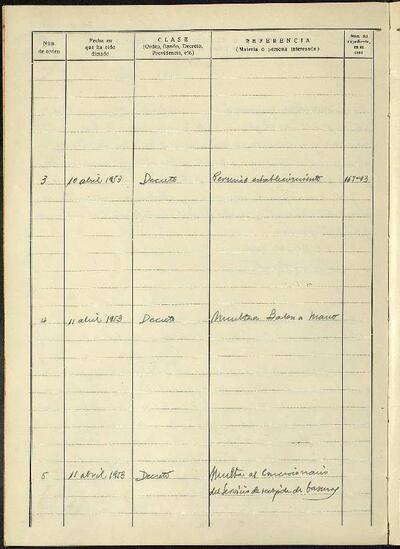 Núm. de orden
Fecha en que ha sido dictado
CLASE
(Orden, Bando, Decreto, Providencia, etc.)
REFERENCIA
(Materia o persona interesada)
Núm. del expediente, en su caso
3 10 abril 1953 Decreto Permiso establecimiento
4 11 abril 1953 Decreto Multa a mano
5 11 abril 1953 Decreto Multa al Concesionario
del Servicio de recogida de basuras